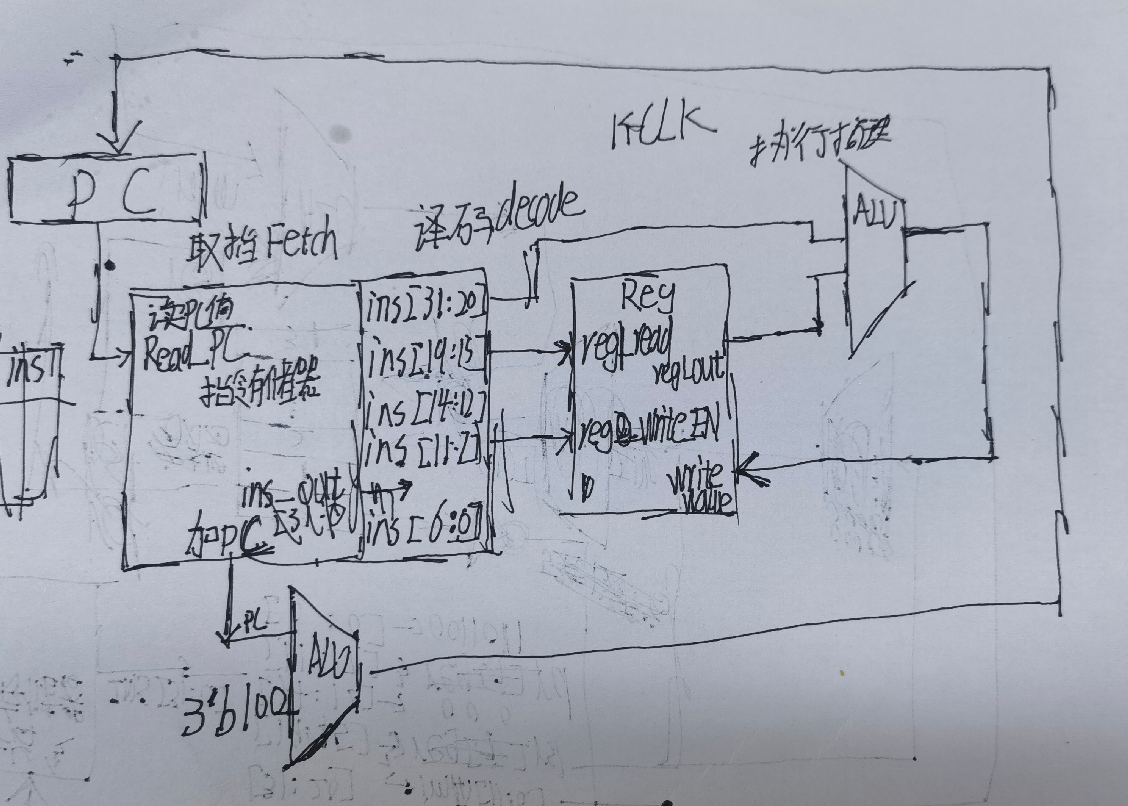 PC
取指 Fetch
译码 decode
CLK
ALU
读PC值
Read_PC
指令存储器
ins_out
加PC
ins[31:20]
ins[19:15]
ins[14:12]
ins[11:7]
ins[6:0]
Reg
reg1_read
reg1_out
write EN
write
value
PC
3'b100
ALU